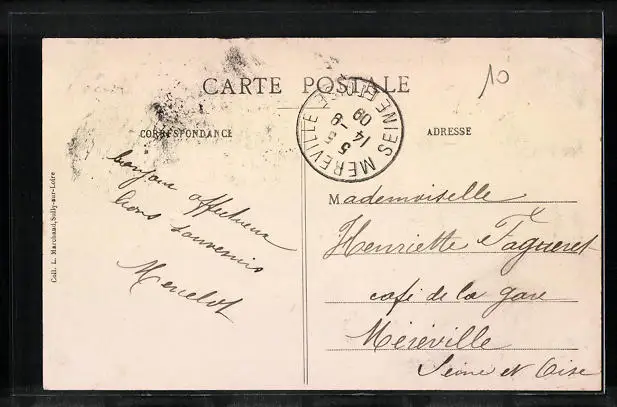 10
CARTE POSTALE
CORRESPONDANCE
ADRESSE
MEREVILLE SEINE ET OISE
14
5 -8
09
bonjour affectueux
bons souvenirs
Menelot
Mademoiselle
Henriette Fagueret
café de la gare
Méréville
Seine et Oise
Coll. L. Marchand, Sully-sur-Loire